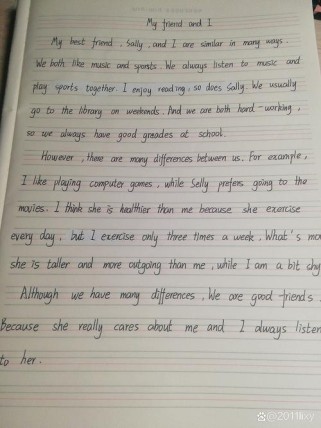 My friend and I
My best friend, Sally, and I are similar in many ways.
We both like music and sports. We always listen to music and
play sports together. I enjoy reading, so does Sally. We usually
go to the library on weekends. And we are both hard-working,
so we always have good greades at school.
However, there are many differences between us. For example,
I like playing computer games, while Selly prefers going to the
movies. I think she is healthier than me because she exercise
every day, but I exercise only three times a week. What's mo
she is taller and more outgoing than me, while I am a bit shy
Although we have many differences, We are good friends.
Because she really cares about me and I always listen
to her.
@2011lixy